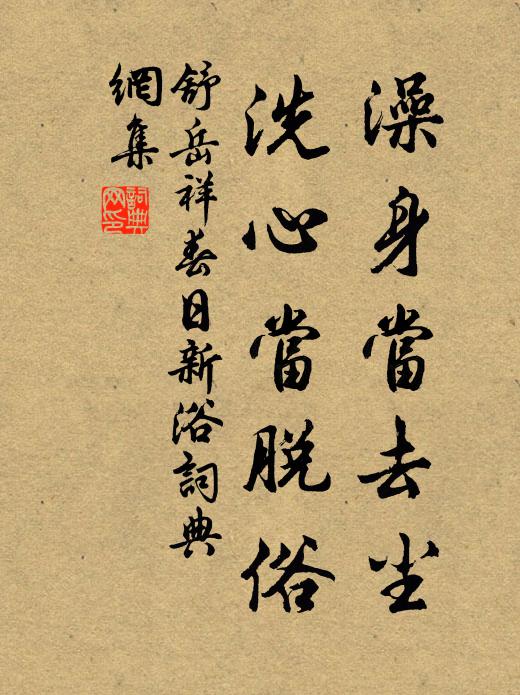 澡身當去尘
洗心當脱俗
舒岳祥春日新浴詞典
網集
詞典网印